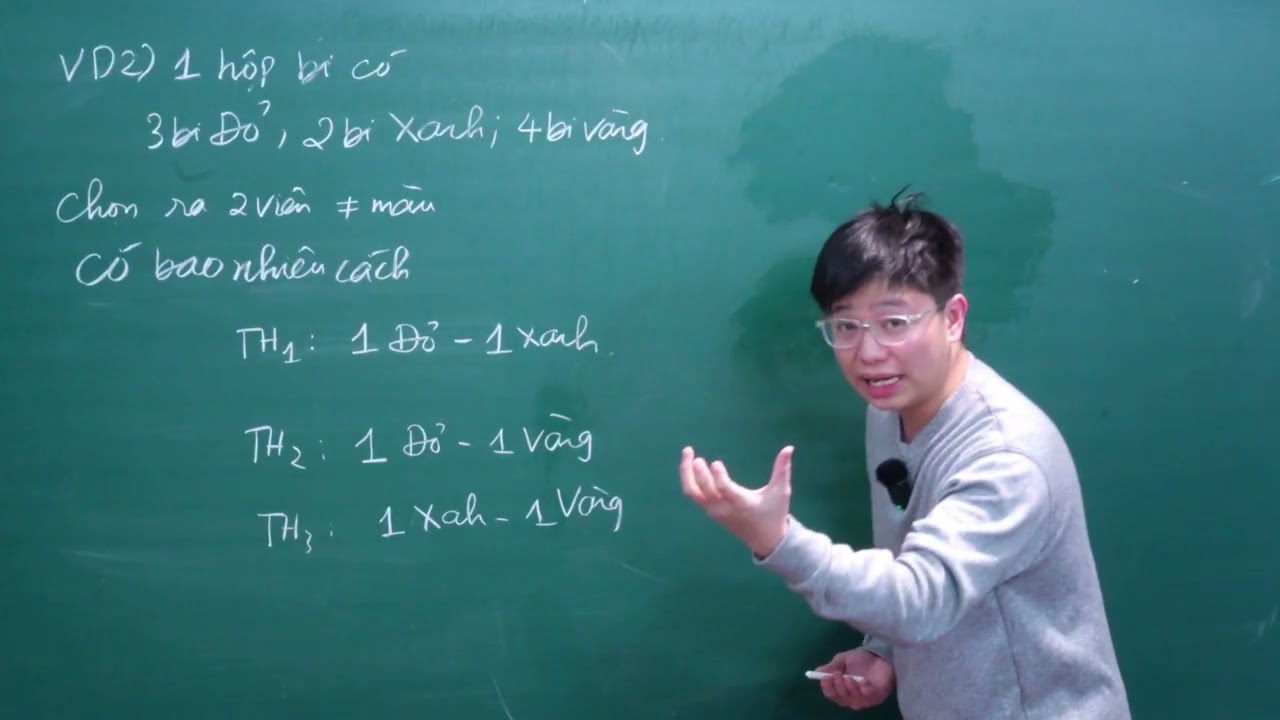 VD2) 1 hộp bi có
3 bi Đỏ, 2 bi Xanh; 4 bi vàng.
Chon ra 2 viên ≠ màu
Có bao nhiêu cách
TH1: 1 Đỏ - 1 xanh.
TH2: 1 Đỏ - 1 Vàng
TH3: 1 Xah - 1 Vàng